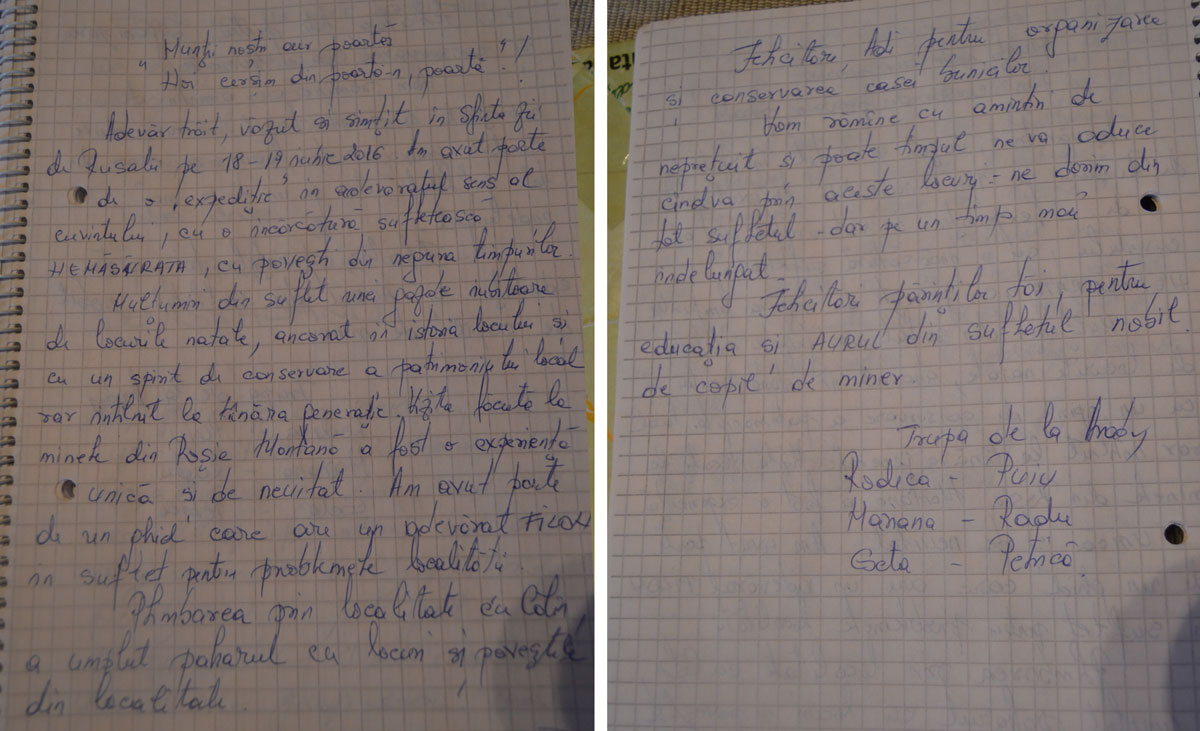 "Munții noștri aur poartă
Noi cerșim din poartă-n, poartă"!
Adevăr trăit, văzut și simțit în sfînta zi
de Rusalii pe 18-19 iunie 2016. Am avut parte
de o "expediție" în adevăratul sens al
cuvîntului, cu o încărcătură sufletească
NEMĂSURATĂ, cu povești din negura timpurilor.
Mulțumiri din suflet unei gazde iubitoare
de locurile natale, ancorat în istoria locului și
cu un spirit de conservare a patrimoniului local
rar întîlnit la tînăra generație. Vizita făcută la
minele din Roșia Montană a fost o experiență
unică și de neuitat. Am avut parte
de un ghid care are un adevărat FILON
în suflet pentru problemele localității.
Plimbarea prin localitate cu Călin,
a umplut paharul cu locuri și poveștile
din localitate.
Felicitări, Adi pentru organizarea
și conservarea casei bunicilor.
Vom rămîne cu amintiri de
neprețuit și poate timpul ne va aduce
cîndva prin aceste locuri - ne dorim din
tot sufletul - dar pe un timp mai
îndelungat.
Felicitări părinților tăi, pentru
educația și AURUL din sufletul nobil
de copil de miner.
Trupa de la Arad
Rodica - Puiu
Mariana - Radu
Geta - Petrică